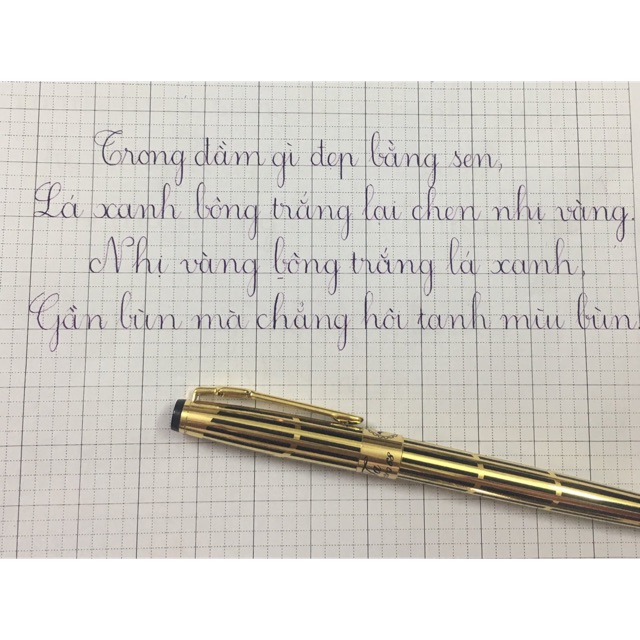 Trong đầm gì đẹp bằng sen,
Lá xanh bông trắng lại chen nhị vàng.
Nhị vàng bông trắng lá xanh,
Gần bùn mà chẳng hôi tanh mùi bùn!